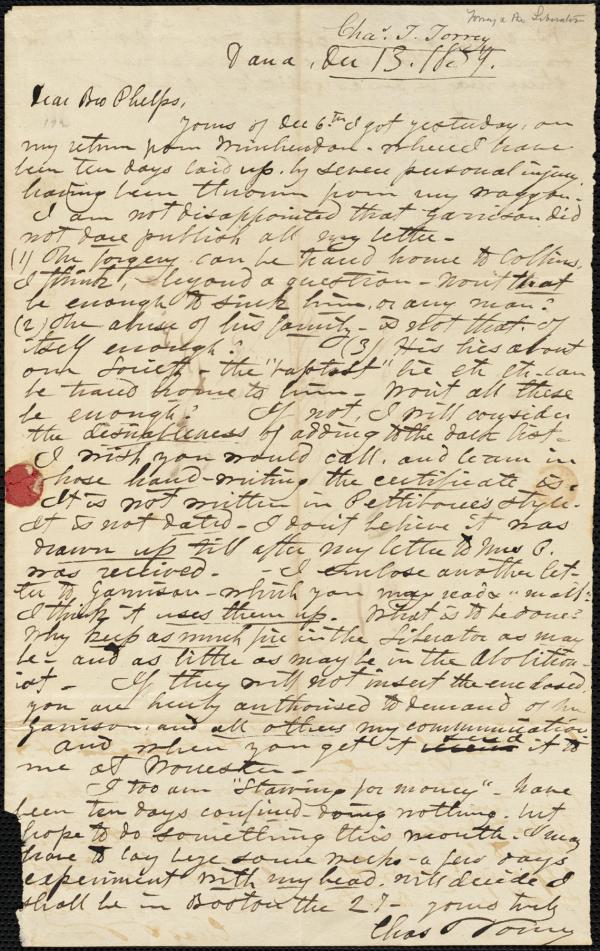 Torrey & the Liberator
Chas. T. Torrey
Dana, Dec 13. 1839.
Dear Bro Phelps,
yours of Dec 6th I got yesterday, on
my return from Winchendon - where I have
been ten days laid up, by severe personal injury,
having been thrown from my waggon -
I am not disappointed that Garrison did
not dare publish all my letter -
(1) The forgery can be traced home to Collins,
I think, beyond a question - Won't that
be enough to sink him, or any man?
(2) The abuse of his family - is not that of
itself enough? (3) His lies about
our Society - the "baptist" lie etc etc - can
be traced home to him - Won't all these
be enough? If not, I will consider
the desirableness of adding to the dark list -
I wish you would call, and learn in
whose hand-writing the certificate is.
It is not written in Pettibone's style.
It is not dated - I don't believe it was
drawn up till after my letter to Mrs P.
was received. - I enclose another let-
ter to Garrison - which you may read & "mail."
I think it uses them up. What is to be done?
Why keep as much fire in the Liberator as may
be - and as little as may be in the Abolition-
ist - If they will not insert the enclosed,
you are hereby authorised to demand of
Garrison, and all others my communication
And when you get it send it to
me at Worcester -
I too am "Starving for money" - have
been ten days confined - doing nothing, but
hope to do something this month. I may
have to lay bye some weeks - a few days
experiment with my head, will decide I
shall be in Boston the 27 - yours truly
Chas T Torrey